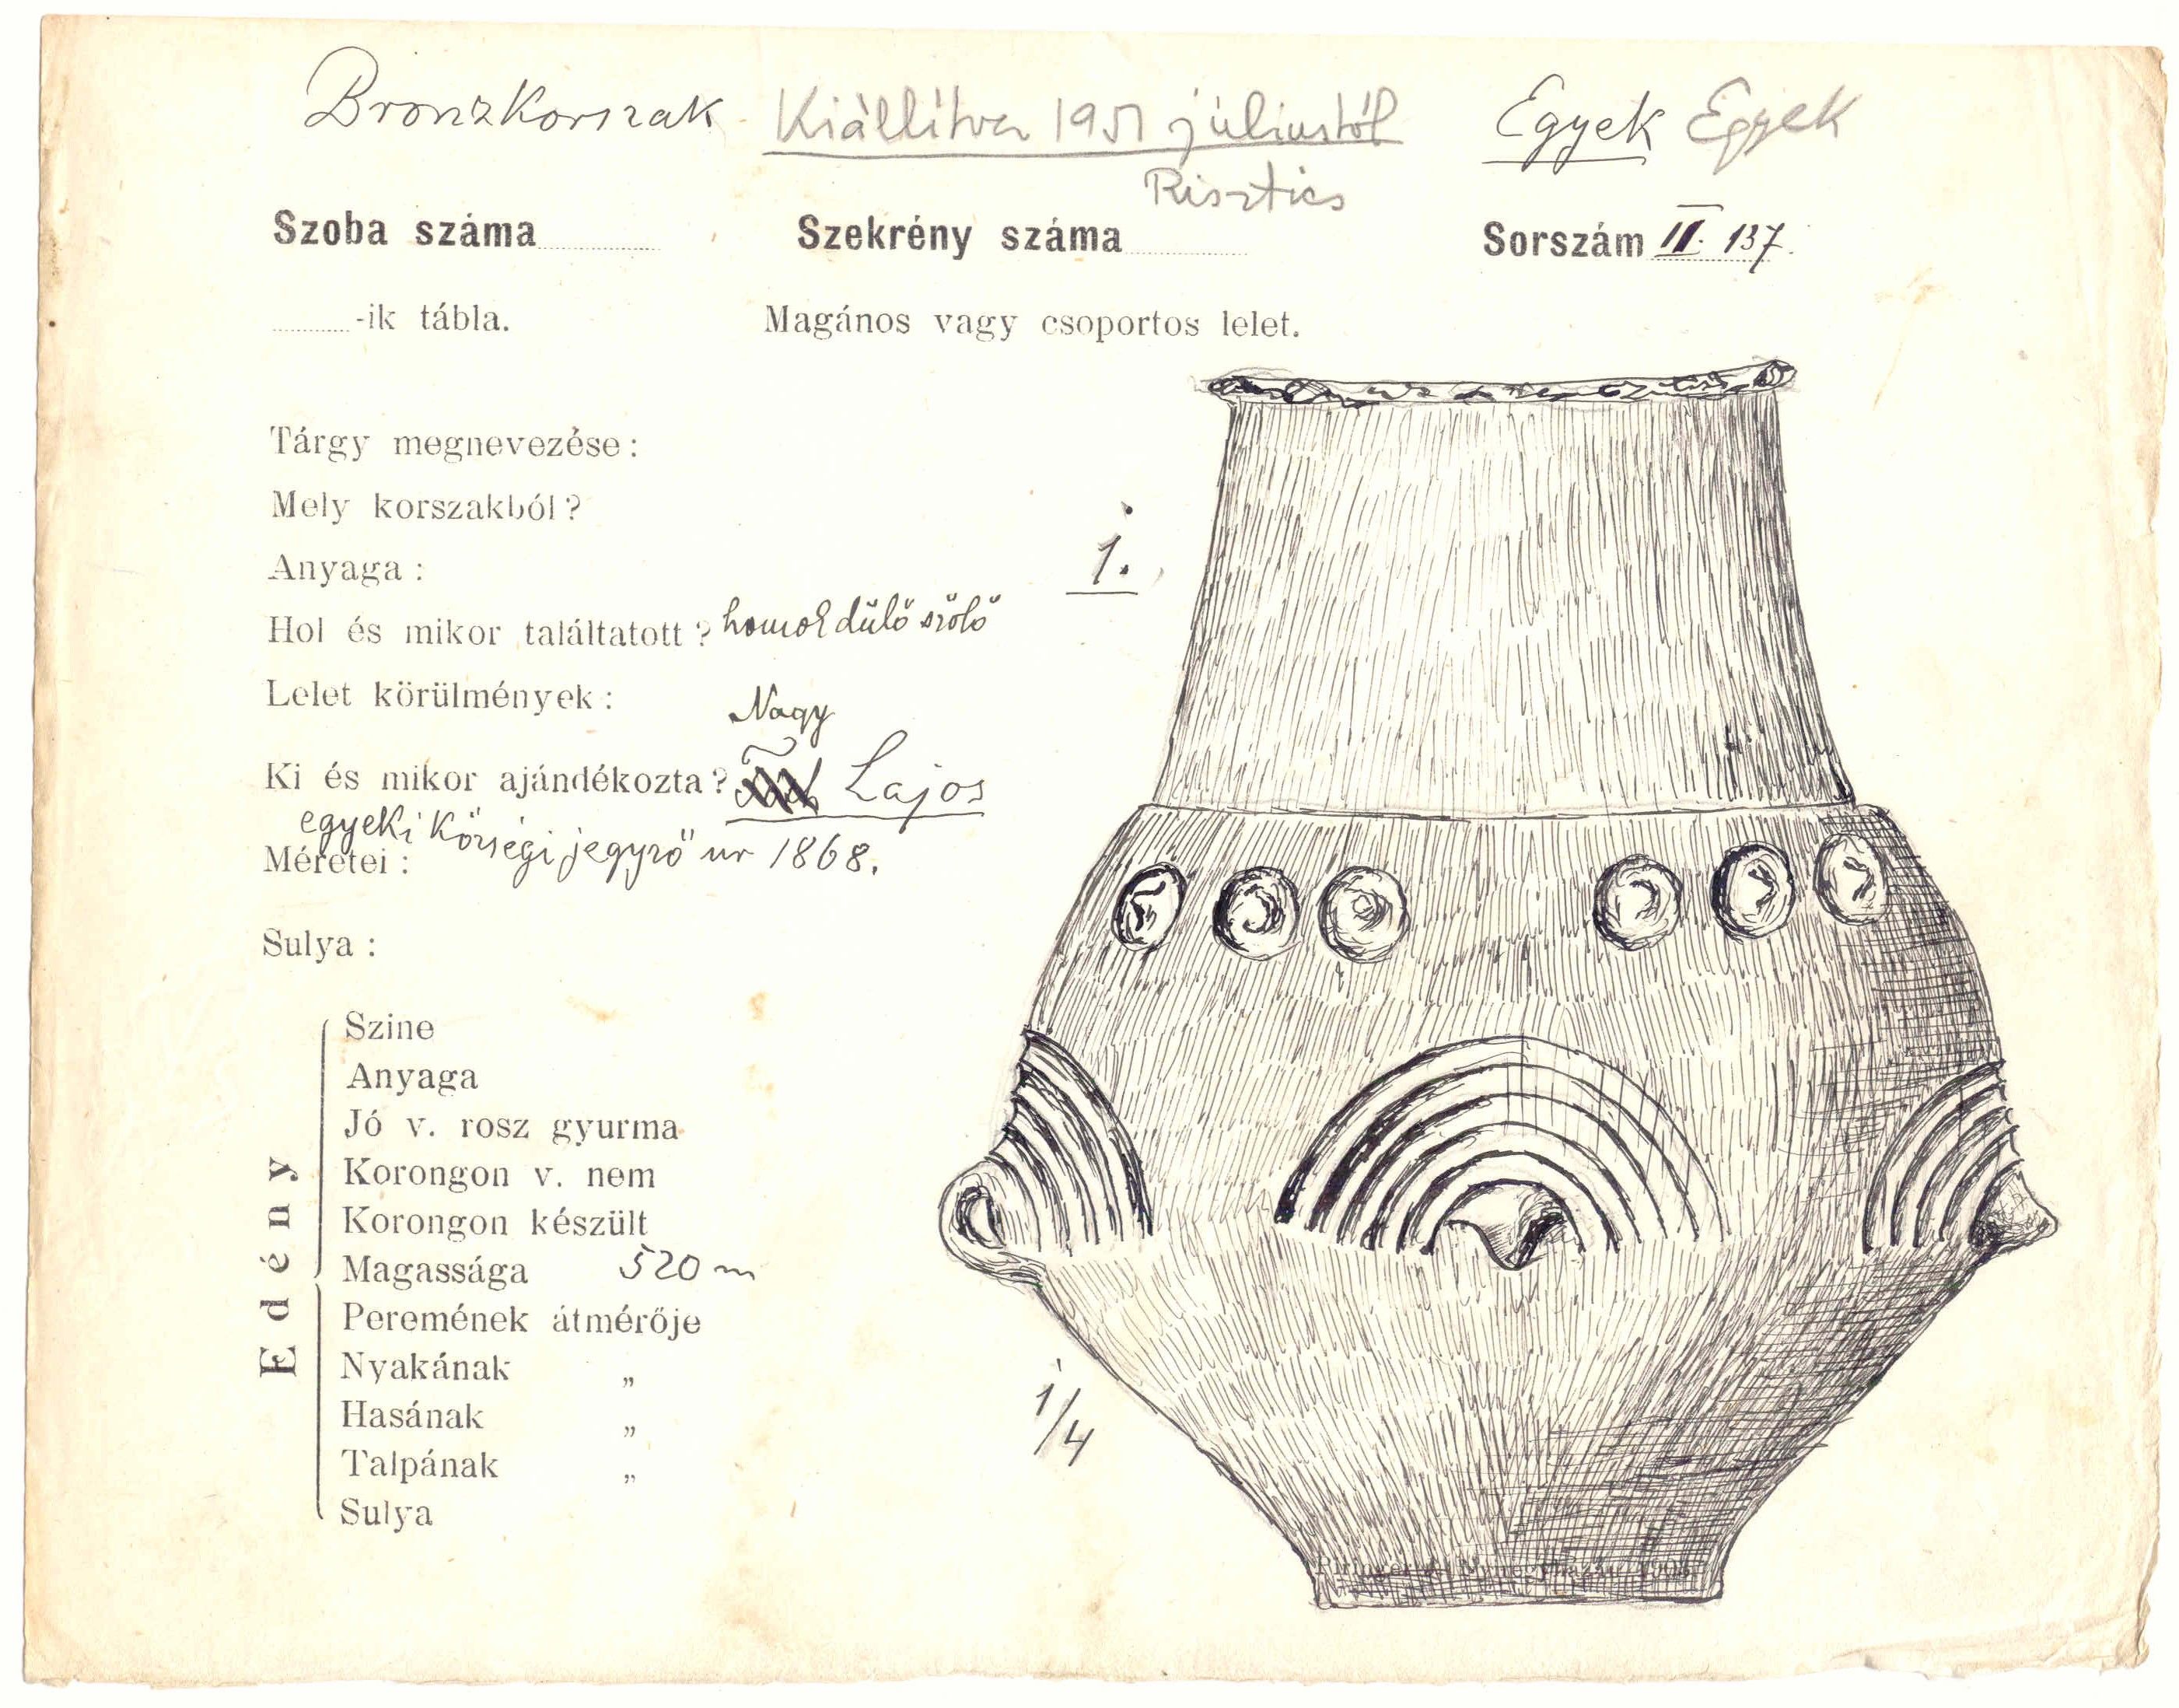 Bronzkorszak Kiállítva 1951 júliustól Egyek Egyek
Risztics
Szoba száma Szekrény száma Sorszám II. 137.
-ik tábla. Magános vagy csoportos lelet.
Tárgy megnevezése:
Mely korszakból?
Anyaga:
1.
Hol és mikor találtatott? homok dülő szőlő
Lelet körülmények:
Nagy
Ki és mikor ajándékozta? Lajos
egyeki községi jegyző ur 1868.
Méretei:
Sulya:
Edény
Szine
Anyaga
Jó v. rosz gyurma
Korongon v. nem
Korongon készült
Magassága 520 m
Peremének átmérője
Nyakának „
Hasának „
Talpának „
Sulya
1/4